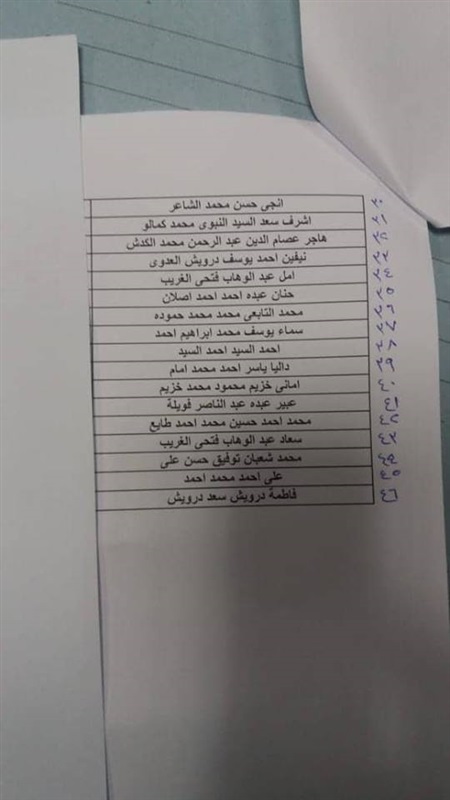 انجى حسن محمد الشاعر
اشرف سعد السيد النبوى محمد كمالو
هاجر عصام الدين عبد الرحمن محمد الكدش
نيفين احمد يوسف درويش العدوى
امل عبد الوهاب فتحى الغريب
حنان عبده احمد احمد اصلان
محمد التابعى محمد محمد حموده
سماء يوسف محمد ابراهيم احمد
احمد السيد احمد السيد
داليا ياسر احمد محمد امام
امانى خزيم محمود محمد خزيم
عبير عبده عبد الناصر فويلة
محمد احمد حسين محمد احمد طايع
سعاد عبد الوهاب فتحى الغريب
محمد شعبان توفيق حسن على
على احمد محمد احمد
فاطمة درويش سعد درويش